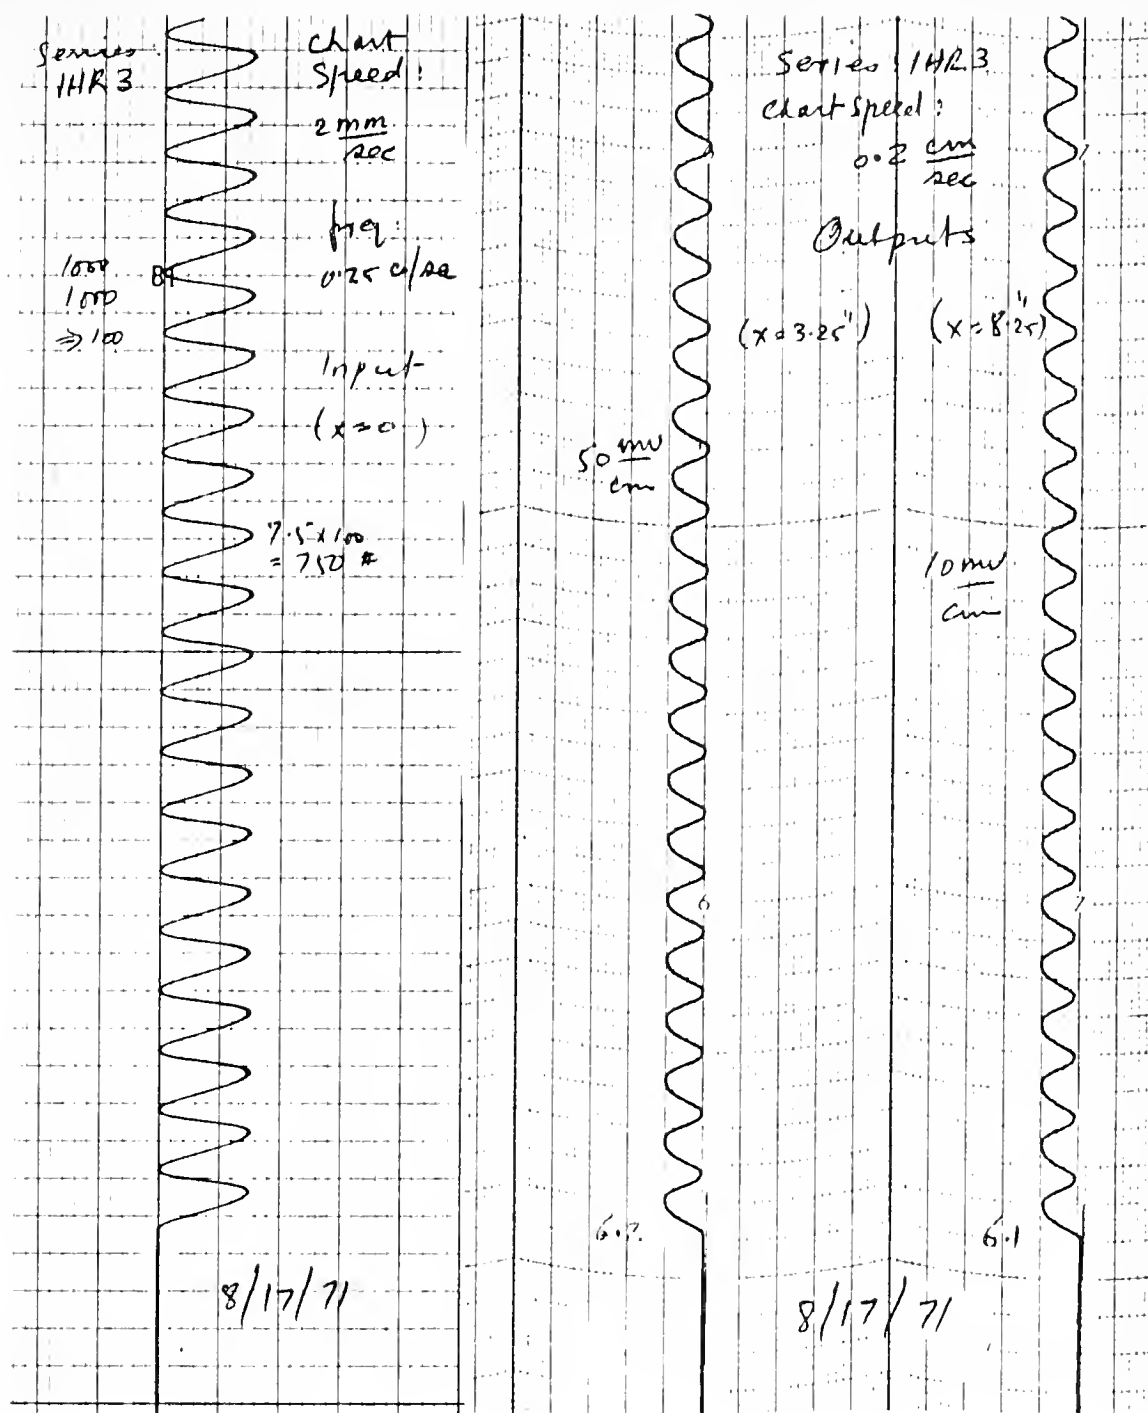 Series
1HR3
Chart
Speed:
2 mm
sec
freq:
0.25 c/sec
1000
1000
⇒ 100
89
Input
(x=0)
7.5 x 100
= 750 #
8/17/71
Series 1HR3
Chart Speed:
0.2 cm
sec
Outputs
(x=3.25")
(x=8.25")
50 mv
cm
10 mv
cm
6
7
7
6.1
8/17/71